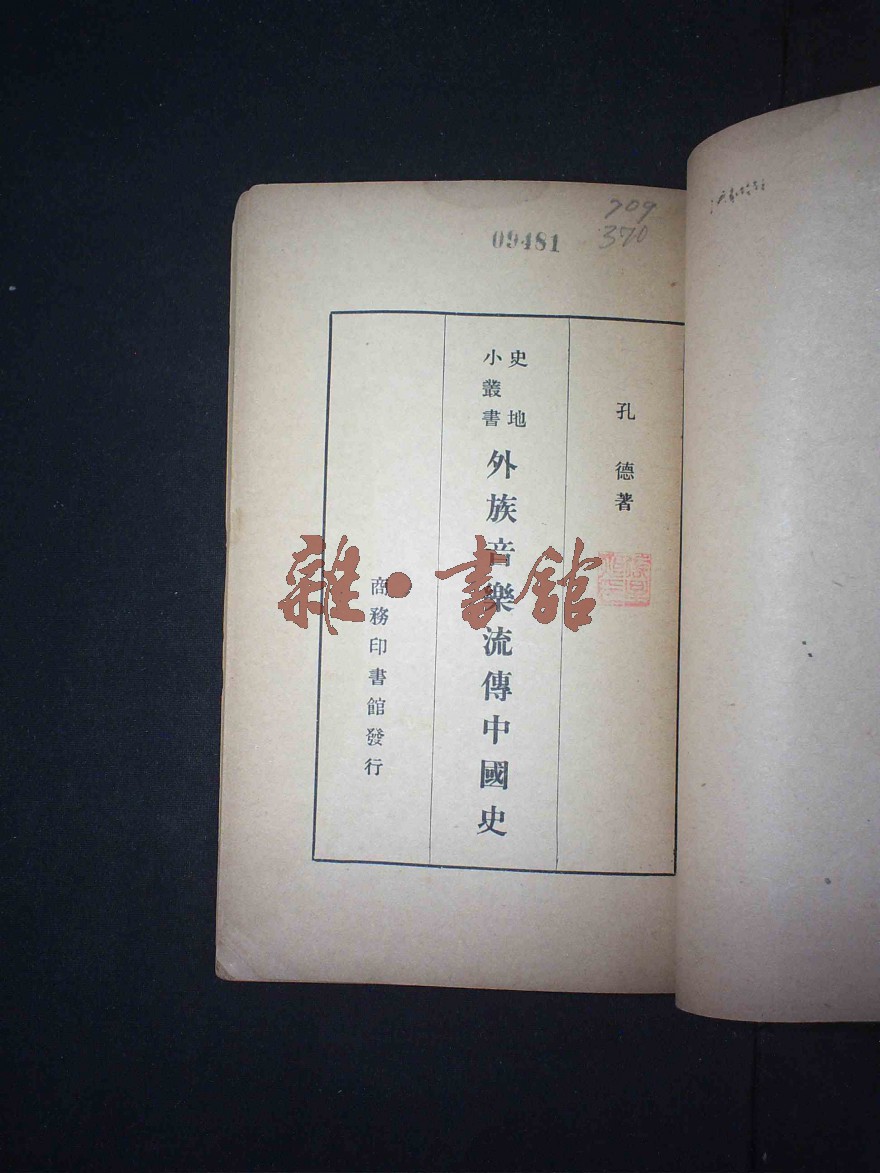 709
09481
370
孔德著
史地
小叢書
外族音樂流傳中國史
商務印書館發行
雜·書館